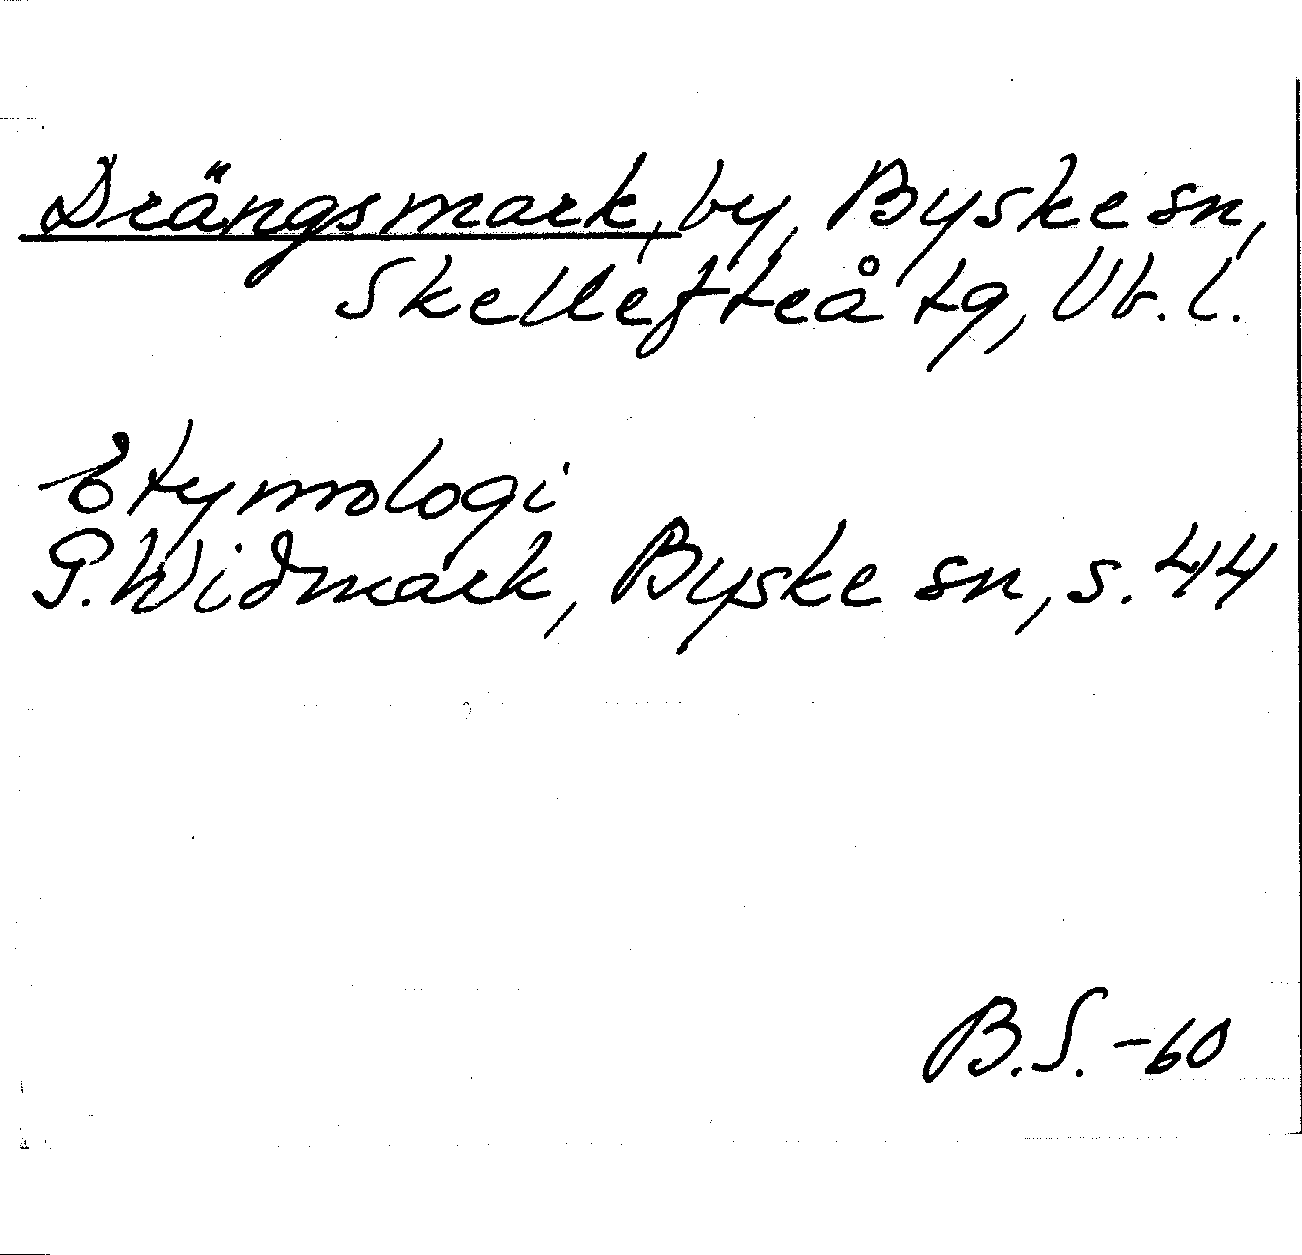 Drängsmark, by, Byske sn,
Skellefteå tg, Vb. l.
Etymologi
P. Widmark, Byske sn, s. 44
B.S. -60